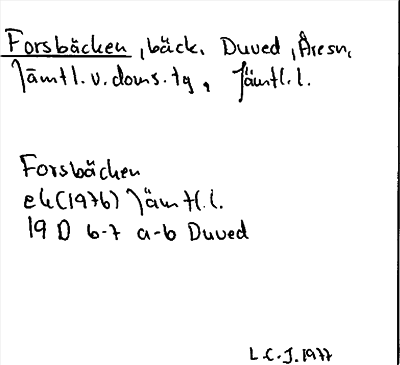 Forsbäcken, bäck. Duved, Åresn,
Jämtl.v.doms.tg, Jämtl.l.
Forsbäcken
ek(1976) Jämtl.l.
19 D 6-7 a-b Duved
L.C.J.1977